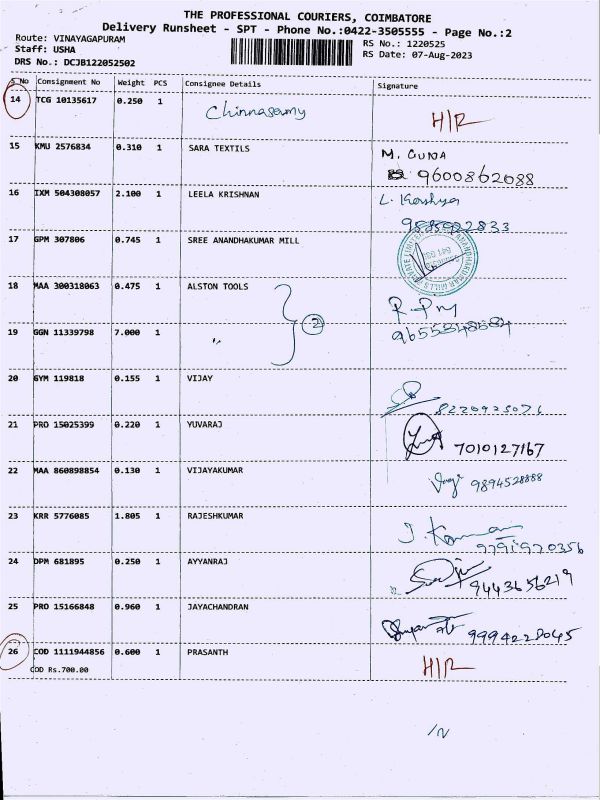 THE PROFESSIONAL COURIERS, COIMBATORE
Delivery Runsheet - SPT - Phone No.:0422-3505555 - Page No.:2
Route: VINAYAGAPURAM
Staff: USHA
DRS No.: DCJB122052502
RS No.: 1220525
RS Date: 07-Aug-2023
S No Consignment No Weight PCS Consignee Details Signature
14 TCG 10135617 0.250 1 Chinnasamy H/R
15 KMU 2576834 0.310 1 SARA TEXTILS M. GUNA
9600862088
16 IXM 504308057 2.100 1 LEELA KRISHNAN L.
17 GPM 307806 0.745 1 SREE ANANDHAKUMAR MILL
18 MAA 300318063 0.475 1 ALSTON TOOLS
19 GGN 11339798 7.000 1 " 2
20 GYM 119818 0.155 1 VIJAY
21 PRO 15025399 0.220 1 YUVARAJ 7010127167
22 MAA 860898854 0.130 1 VIJAYAKUMAR 9894528888
23 KRR 5776085 1.805 1 RAJESHKUMAR
9791970356
24 DPM 681895 0.250 1 AYYANRAJ 9443656219
25 PRO 15166848 0.960 1 JAYACHANDRAN 9994220045
26 COD 1111944856 0.600 1 PRASANTH H/R
COD Rs.700.00